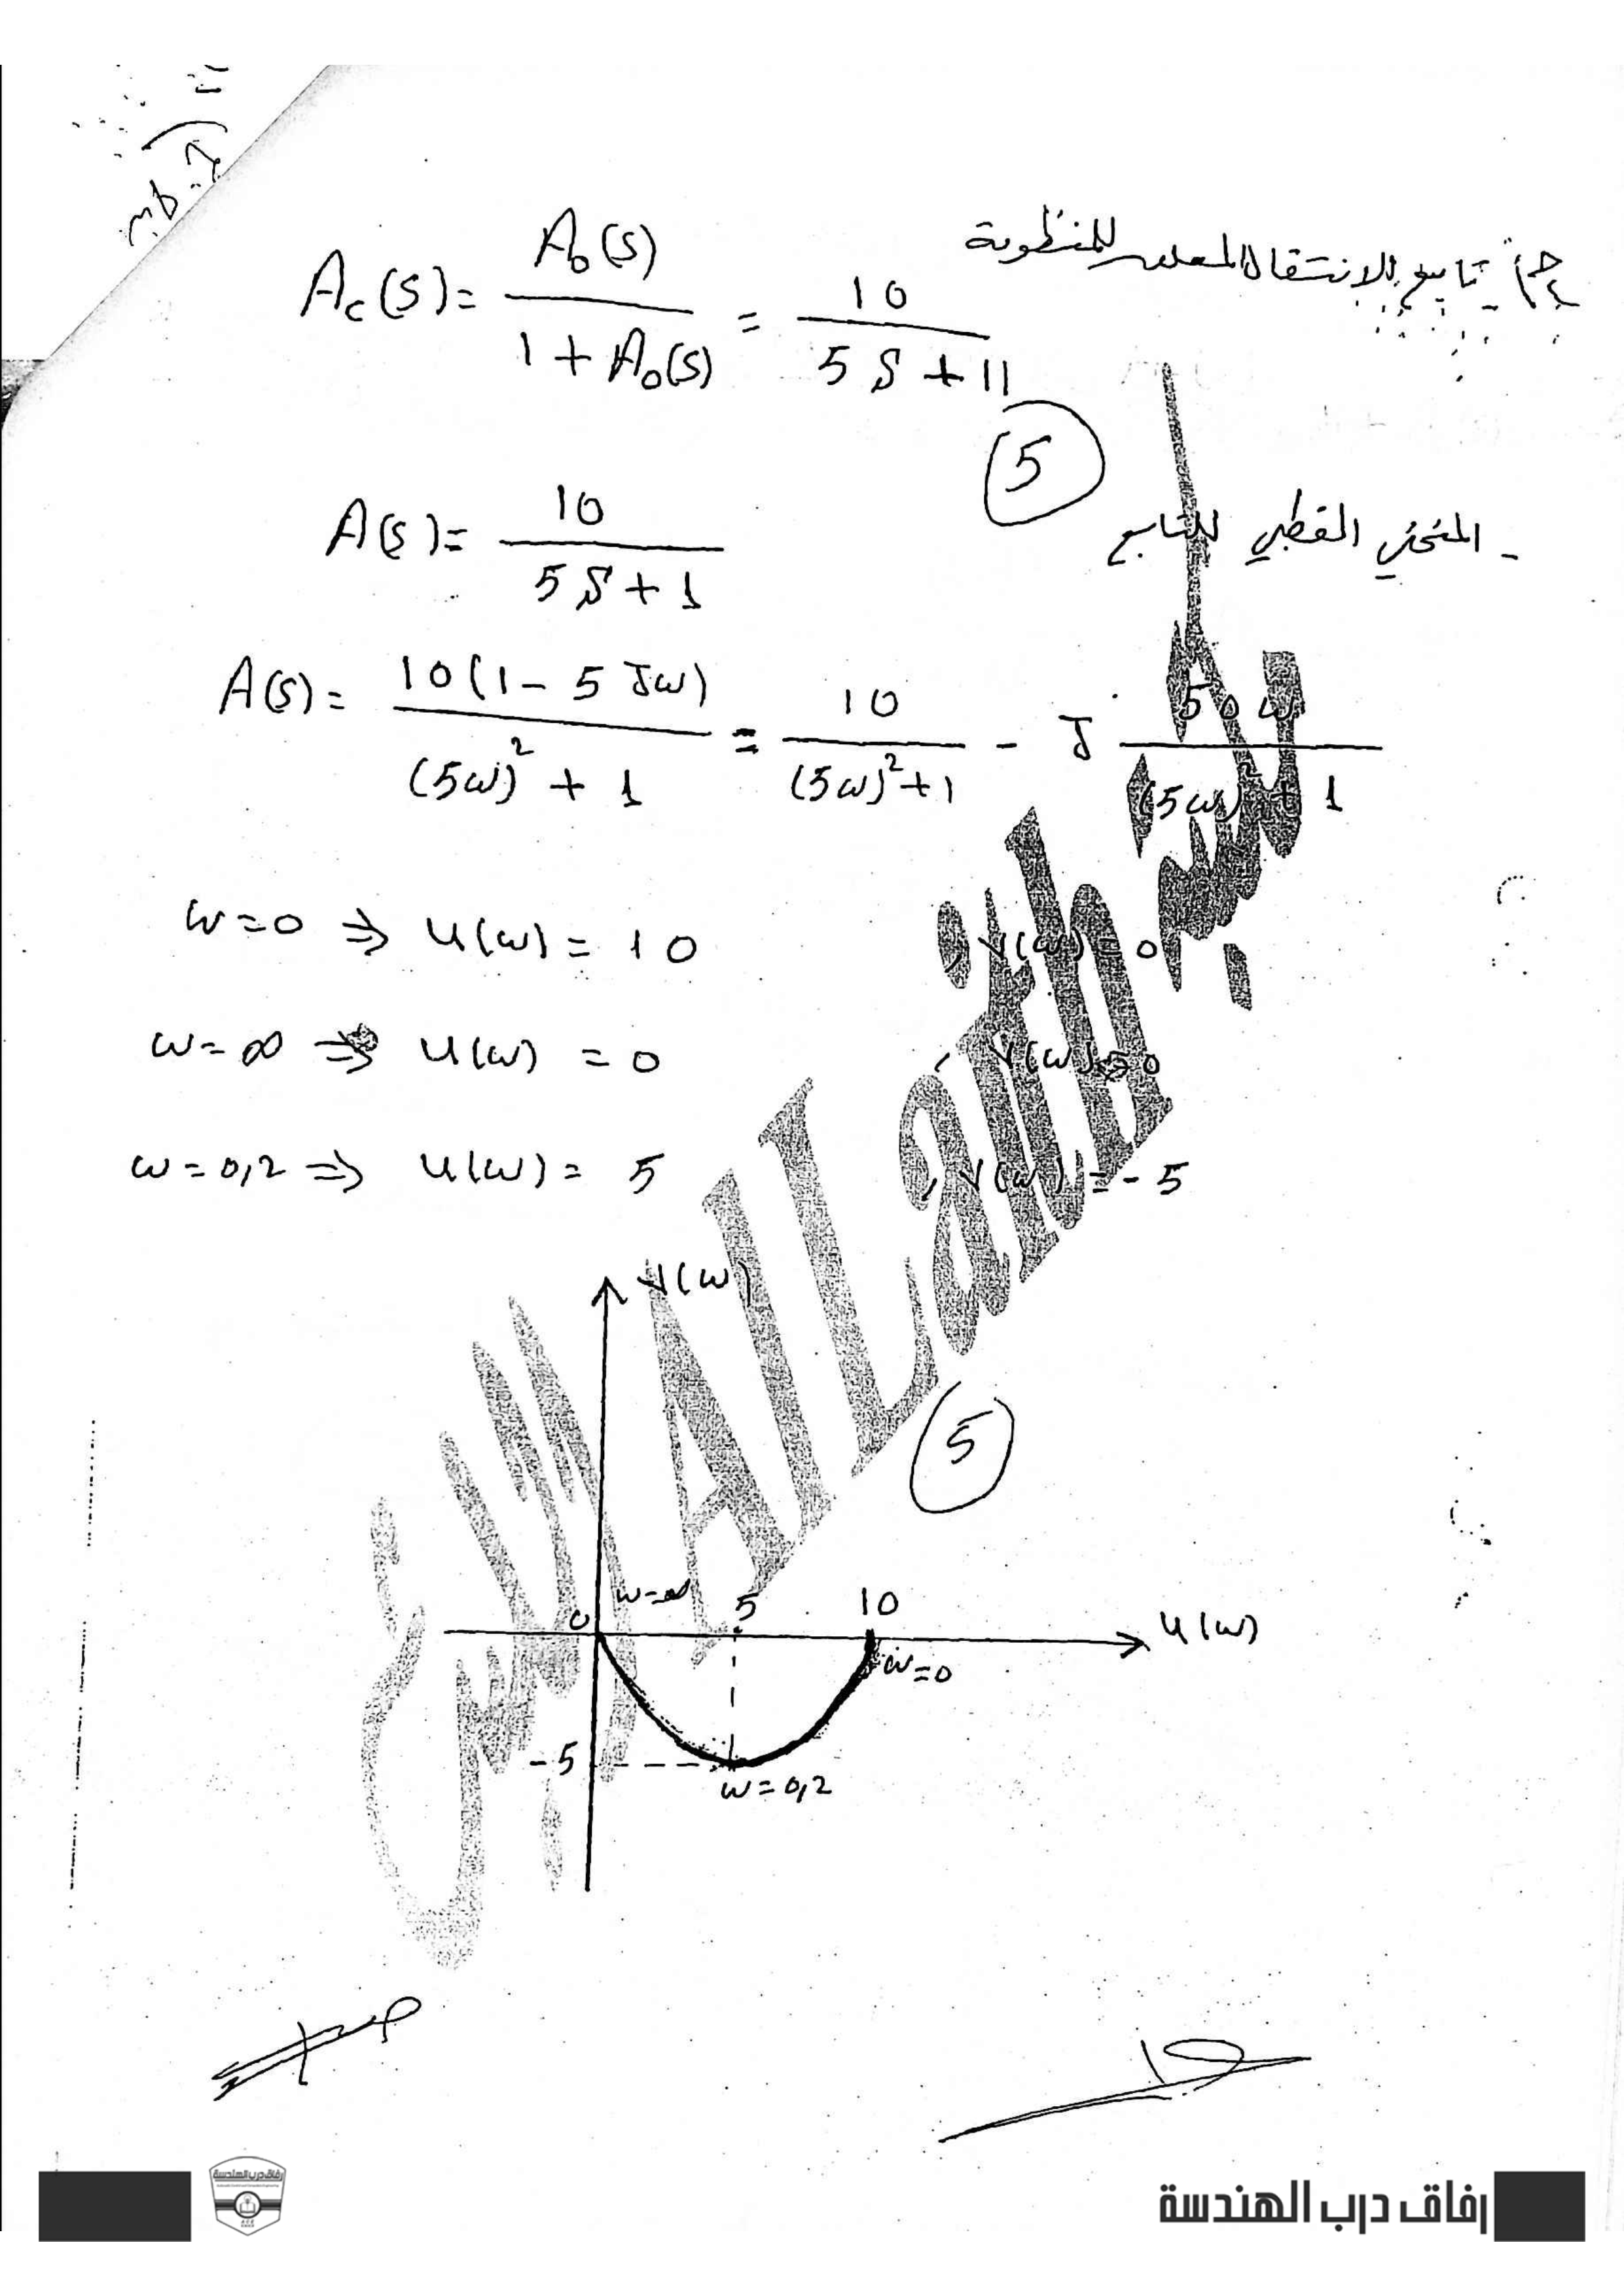 ج) - تابع الانتقال المغلق للمنظومة
Ac(s) = A₀(s) / (1 + A₀(s)) = 10 / (5S + 11)
5
- المنحني القطبي للتابع
A(s) = 10 / (5S + 1)
A(s) = 10(1 - 5Jω) / ((5ω)² + 1) = 10 / ((5ω)² + 1) - J 50ω / ((5ω)² + 1)
ω=0 ⇒ u(ω) = 10 , V(ω) = 0
ω=∞ ⇒ u(ω) = 0 , V(ω) = 0
ω=0,2 ⇒ u(ω) = 5 , V(ω) = -5
V(ω)
5
0 ω=∞ 5 10 u(ω)
ω=0
-5
ω=0,2
AlLaith
رفاق درب الهندسة